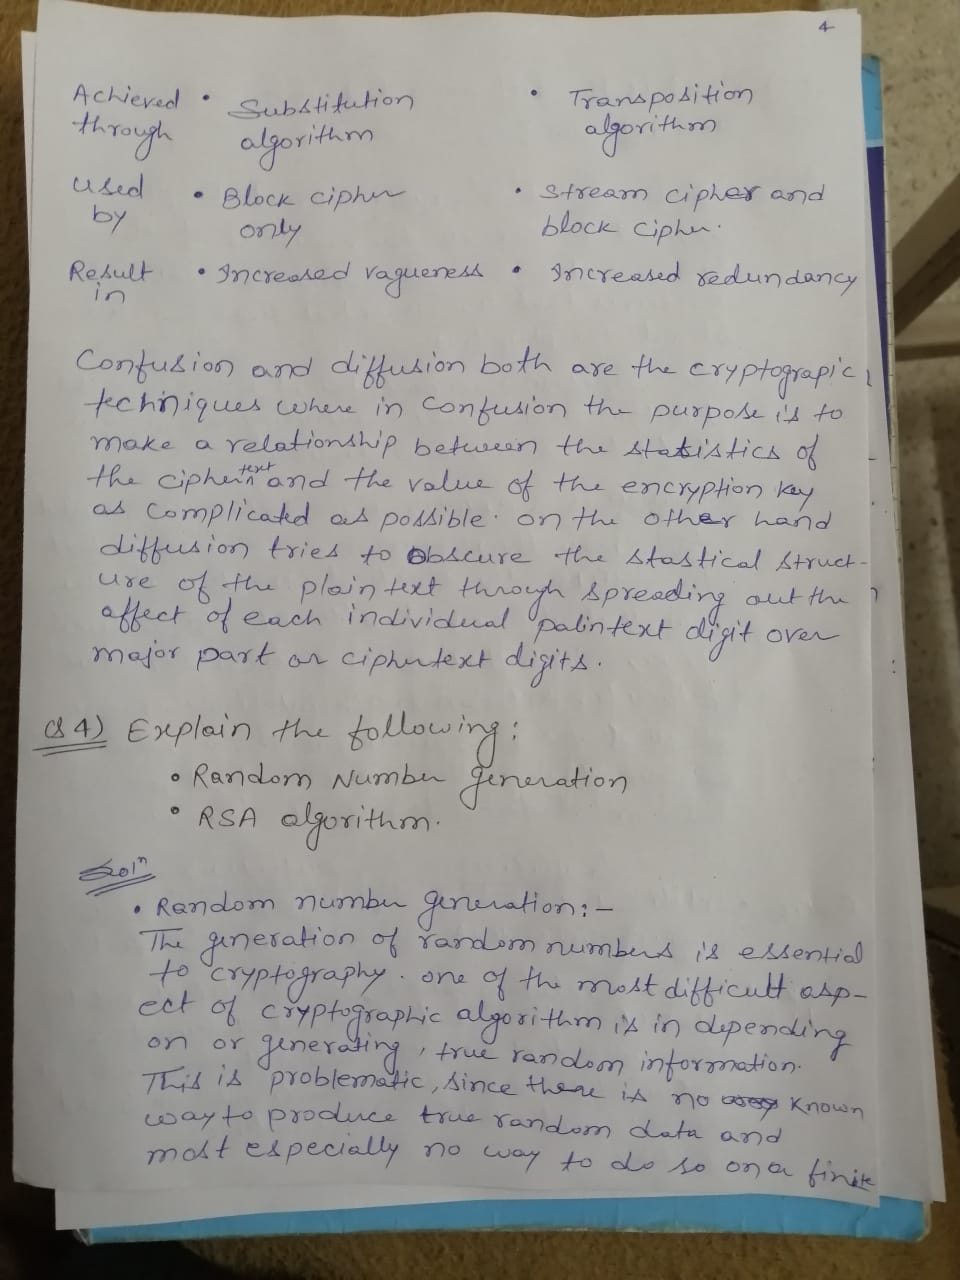 4
Achieved • Substitution • Transposition
through algorithm algorithm
Used • Block cipher • Stream cipher and
by only block cipher.
Result • Increased vagueness • Increased redundancy
in
Confusion and diffusion both are the cryptograpic
techniques where in confusion the purpose is to
make a relationship between the statistics of
the ciphertext and the value of the encryption key
as complicated as possible. on the other hand
diffusion tries to obscure the stastical struct-
ure of the plaintext through spreading out the
affect of each individual palintext digit over
major part or ciphertext digits.
Q4) Explain the following:
• Random Number generation
• RSA algorithm.
Soln
• Random number generation:-
The generation of random numbers is essential
to cryptography. one of the most difficult asp-
ect of cryptographic algorithm is in depending
on or generating, true random information.
This is problematic, since there is no known
way to produce true random data and
most especially no way to do so on a finite